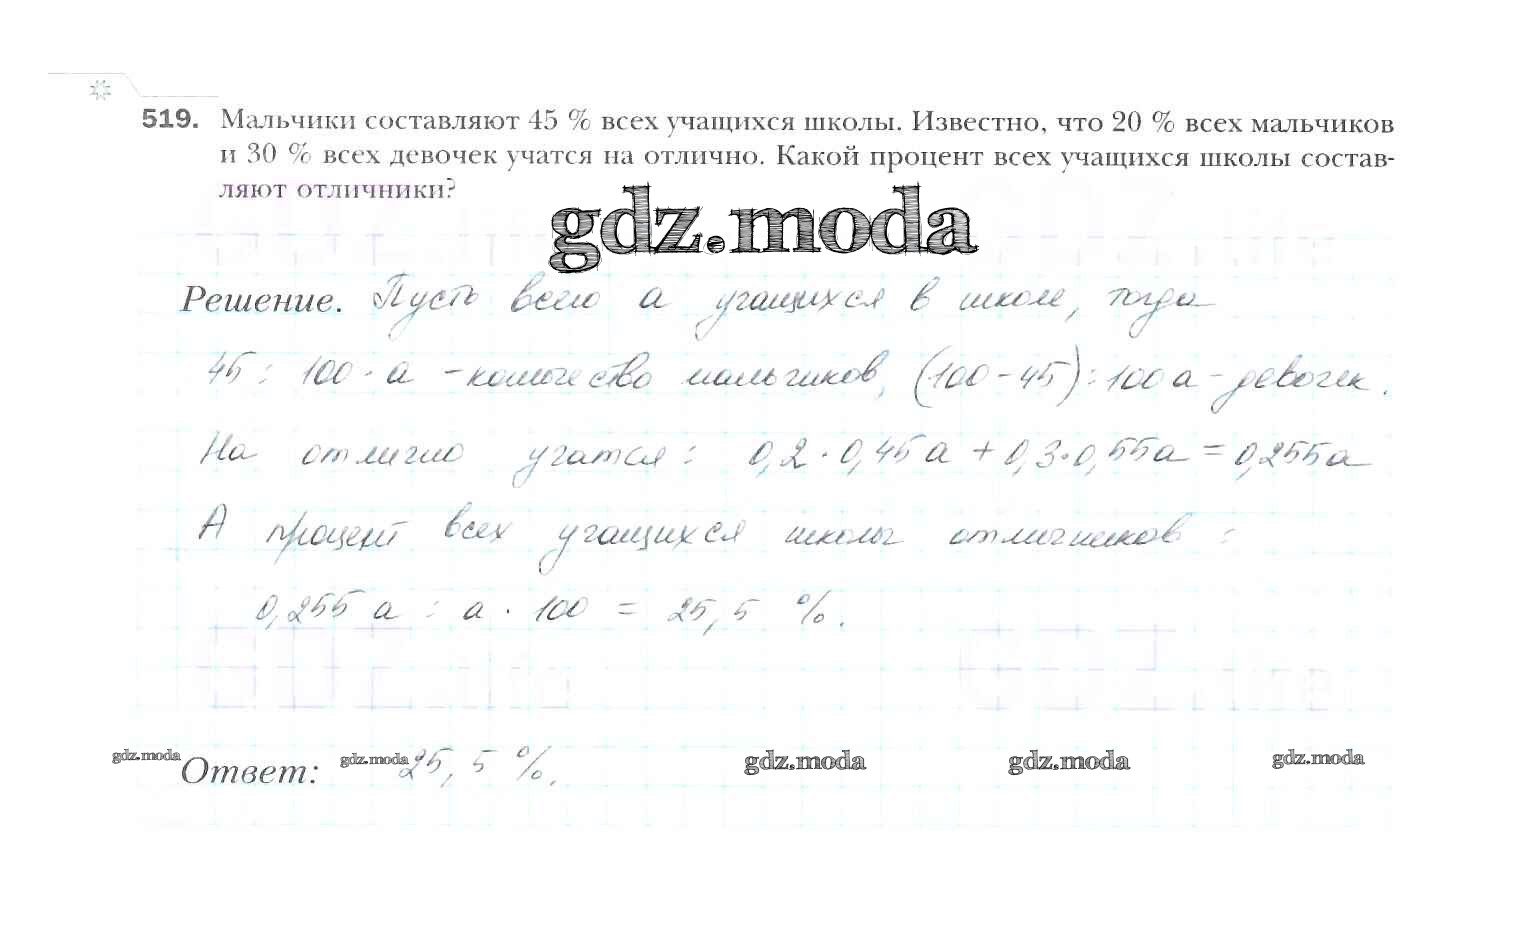 519. Мальчики составляют 45 % всех учащихся школы. Известно, что 20 % всех мальчиков
и 30 % всех девочек учатся на отлично. Какой процент всех учащихся школы состав-
ляют отличники?
gdz.moda
Решение. Пусть всего а учащихся в школе, тогда
45 : 100 · а - количество мальчиков, (100 - 45) : 100 а - девочек.
На отлично учатся : 0,2 · 0,45а + 0,3 · 0,55а = 0,255а
А процент всех учащихся школы отличников :
0,255 а : а · 100 = 25,5 %.
gdz.moda Ответ: gdz.moda 25,5 %. gdz.moda gdz.moda gdz.moda